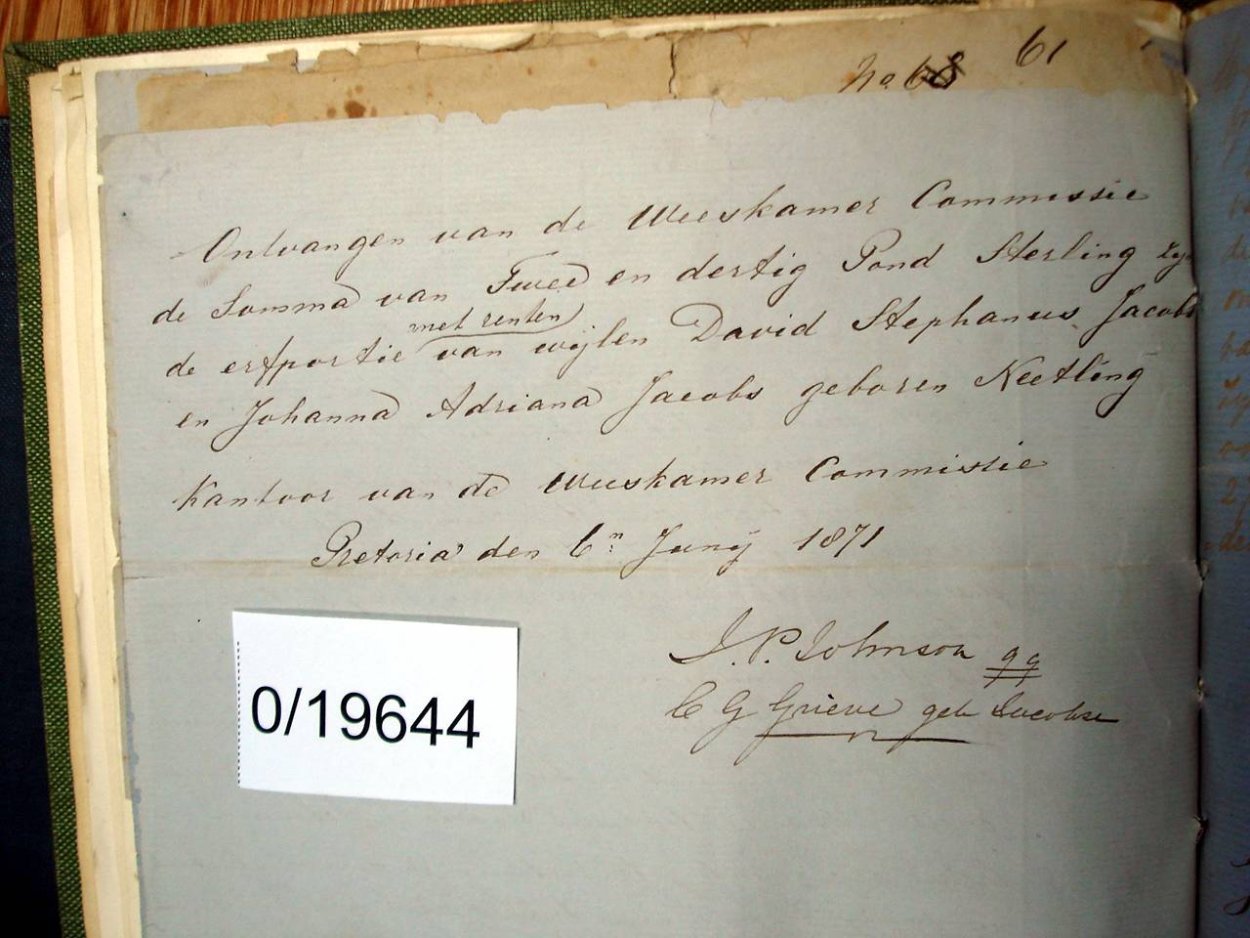 No 68 61
Ontvangen van de Weeskamer Commissie
de Somma van Twee en dertig Pond Sterling zy
met renten
de erfportie van wijlen David Stephanus Jacobs
en Johanna Adriana Jacobs geboren Neetling
Kantoor van de Weeskamer Commissie
Pretoria den 6n Junij 1871
J. P. Johnson qq
C G Grieve geb Jacobse
0/19644